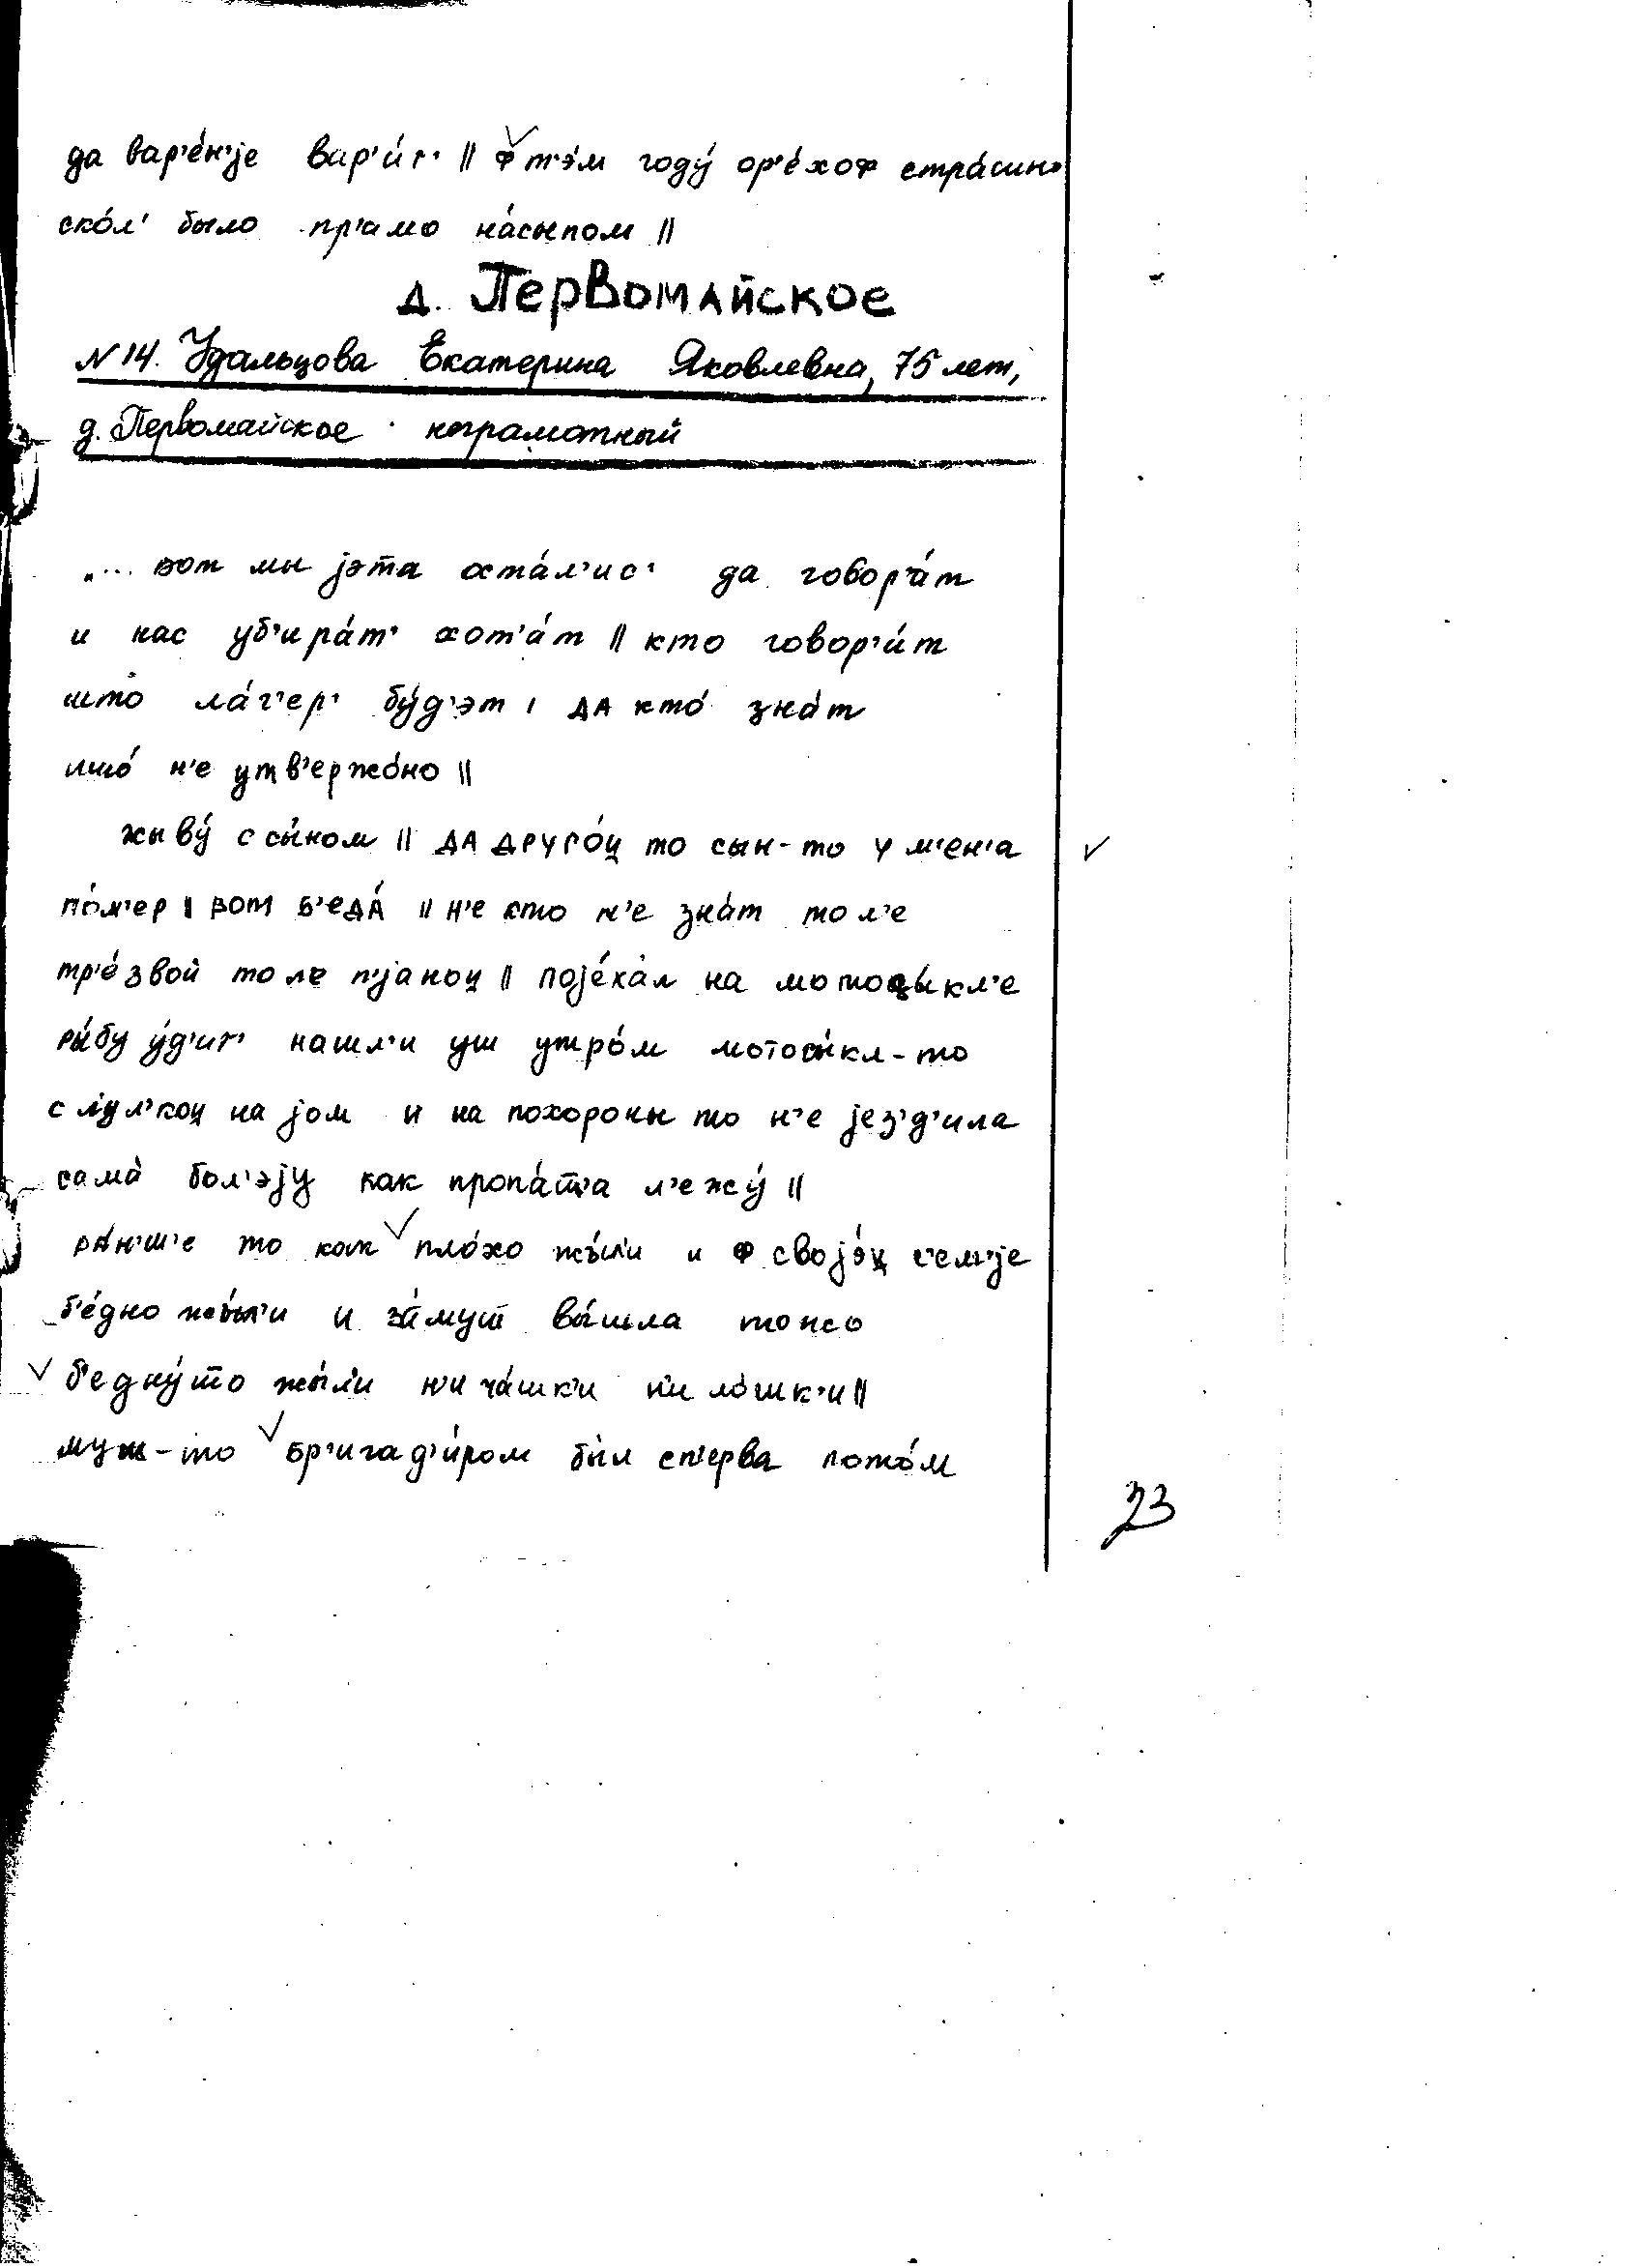 да вар'е́н'je вар'и́т' || ф т'э́м году́ ор'е́хоф стра́шно
ско́л' было пр'амо на́сыпом ||
д. Первомайское
N 14. Удальцова Екатерина Яковлевна, 75 лет,
д. Первомайское неграмотный
"... вот мы jэта оста́л'ис' да говор'а́т
и нас уб'ира́т' хот'а́т || кто говор'и́т
што ла́г'ер' бу́д'эт | да кто́ зна́т
ишо́ н'е утв'ержо́но ||
жыву́ с сы́ном || да друго́ц то сын-то у м'ен'а
по́м'ер | вот б'еда́ || н'е кто н'е зна́т то л'е
тр'е́звой то ле п'jаноц || поjе́хал на мотоцы́кл'е
ры́бу у́д'ит' нашл'и уш утро́м мотосы́кл-то
с л'ул'коц на jом и на похороны то н'е jез'д'ила
сама́ бол'эjу как пропа́ш'а л'ежу́ ||
ра́н'ш'е то как пло́хо жы́л'и и ф своjе́ц с'ем'jе
б'е́дно жы́л'и и за́муш вы́шла тожо
б'едну́што жы́л'и н'и ча́шк'и н'и ло́шк'и ||
муш-то бр'игад'и́ром был сп'ерва пото́м
23